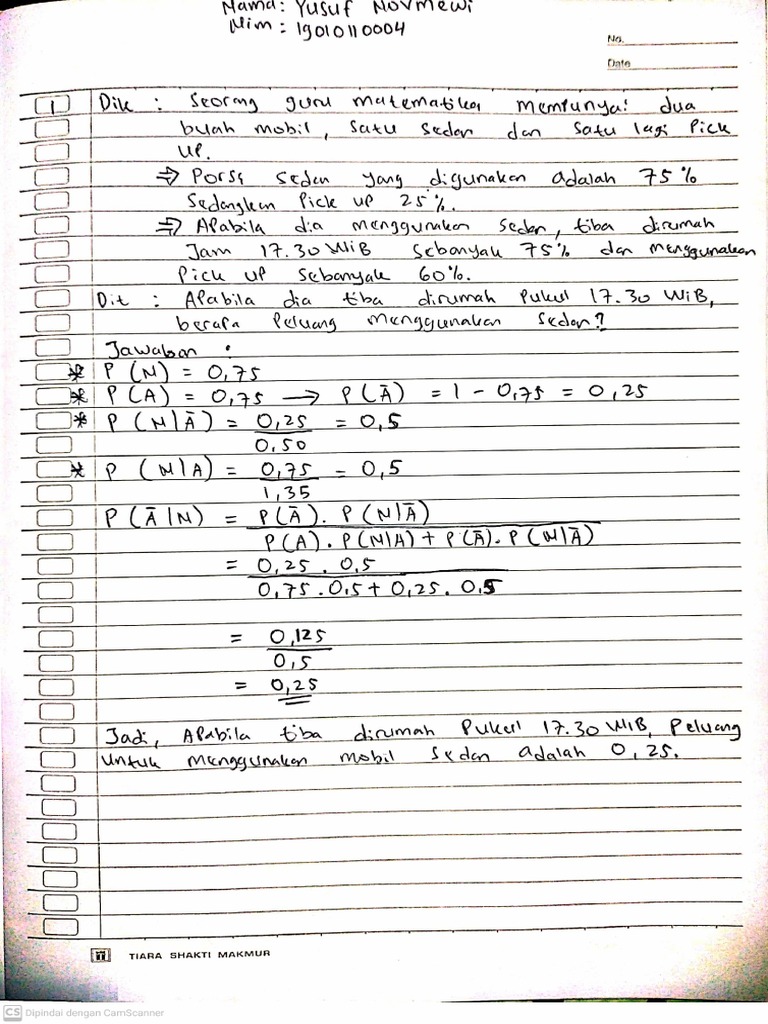 Nama : Yusuf Novmewi
Nim : 19010110004
No.
Date
1 Dik : Seorang guru matematika mempunyai dua
buah mobil, satu sedan dan satu lagi Pick
up.
⇒ Porsi sedan yang digunakan adalah 75%
Sedangkan Pick up 25%.
⇒ Apabila dia menggunakan sedan, tiba dirumah
Jam 17.30 WIB sebanyak 75% dan menggunakan
Pick up sebanyak 60%.
Dit : Apabila dia tiba dirumah pukul 17.30 WIB,
berapa Peluang menggunakan sedan?
Jawaban :
* P (N) = 0,75
* P (A) = 0,75 → P (Ā) = 1 - 0,75 = 0,25
* P (N|Ā) = 0,25 = 0,5
0,50
* P (N|A) = 0,75 = 0,5
1,35
P (Ā|N) = P(Ā). P(N|Ā)
P(A). P(N|A) + P(Ā). P(N|Ā)
= 0,25 . 0,5
0,75 . 0,5 + 0,25 . 0,5
= 0,125
0,5
= 0,25
Jadi, Apabila tiba dirumah Pukul 17.30 WIB, Peluang
untuk menggunakan mobil sedan adalah 0,25.
TIARA SHAKTI MAKMUR
CS Dipindai dengan CamScanner